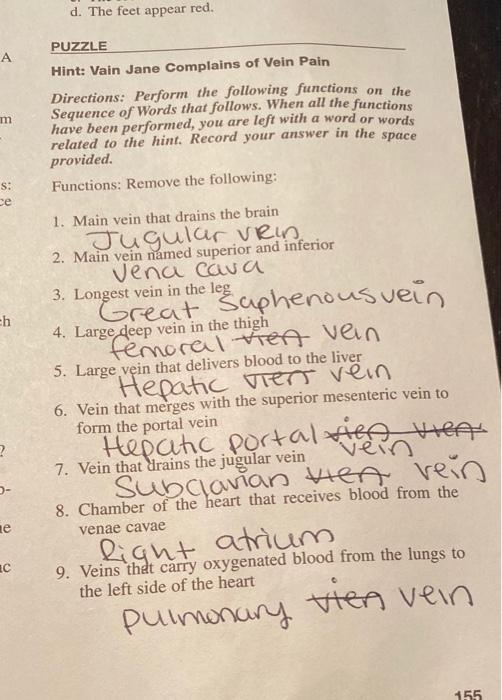 d. The feet appear red.
A
PUZZLE
Hint: Vain Jane Complains of Vein Pain
Directions: Perform the following functions on the
m
Sequence of Words that follows. When all the functions
have been performed, you are left with a word or words
related to the hint. Record your answer in the space
provided.
s:
Functions: Remove the following:
ce
1. Main vein that drains the brain
Jugular vein
2. Main vein named superior and inferior
Vena cava
3. Longest vein in the leg
Great Saphenous vein
ch
4. Large deep vein in the thigh
femoral vien vein
5. Large vein that delivers blood to the liver
Hepatic vien vein
6. Vein that merges with the superior mesenteric vein to
form the portal vein
?
Hepatic portal vien vien vein
7. Vein that drains the jugular vein
Subclavian vien vein
8. Chamber of the heart that receives blood from the
venae cavae
Right atrium
9. Veins that carry oxygenated blood from the lungs to
the left side of the heart
pulmonary vien vein
155